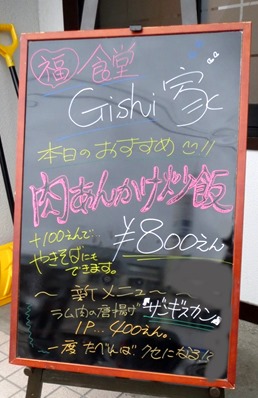 福 食堂
Gishi家
本日のおすすめ!!
肉あんかけ炒飯
¥800えん
+100えんで
やきそばにも
できます。
〜 新メニュー 〜
ラム肉の唐揚げ "ザンギスカン"
1P...400えん。
一度たべればクセになる!!